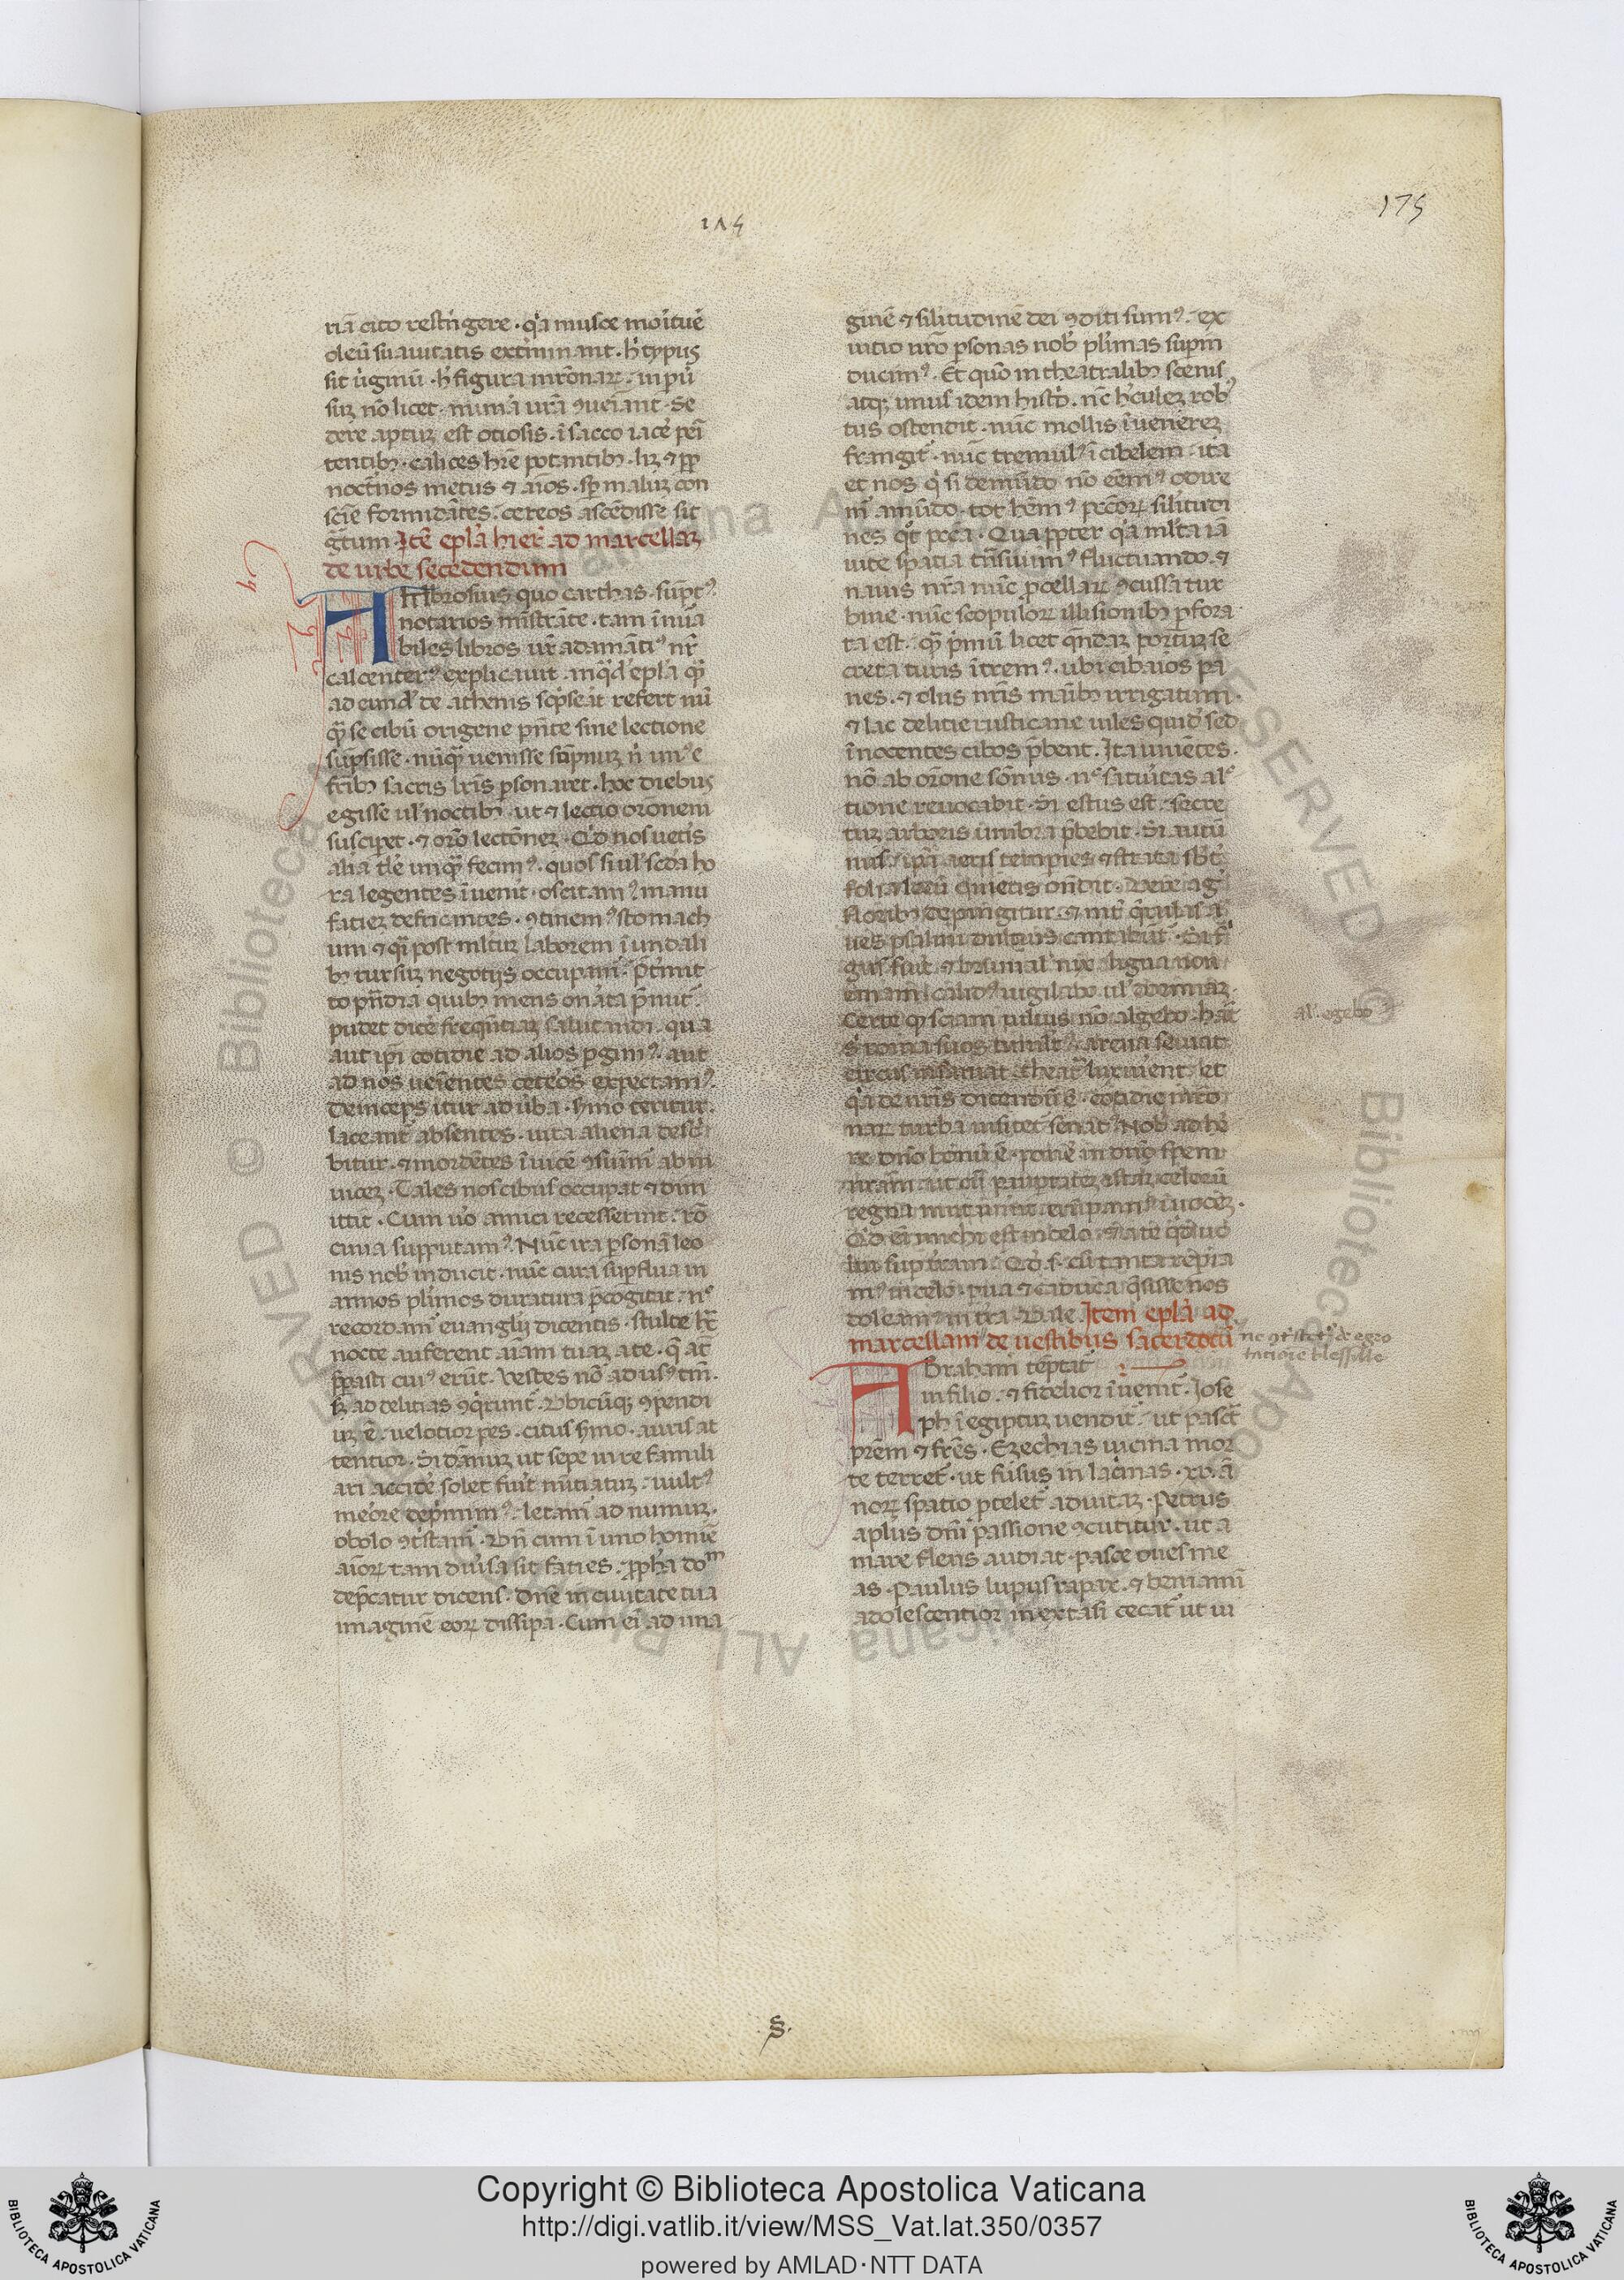 175
175
riā cito restringere · qa musce moituē
oleū suauitatis exterminant · h typus
sit uiginū · h figura matronaꝝ · ui pu
suꝫ nō licet · nimia urā ꝯueniant · Se
dere aptuꝫ est otiosis · ī sacco iacē peni
tentibꝫ · calices hr̄e potantibꝫ · lꝫ ⁊ pp̄
noctn̄os metus ⁊ aīos · sp maluꝫ con
scīe formidātes · ceteos ascēdisse sit
gatum · Itē epl̓a hier̓ ad marcellaꝫ
de urbe secedendum
AMbrosius quo cartas · sūptꝰ
notarios mīstrāte · tam īnūa
biles libros ur̄ adamātiꝰ nr̄
calcenterꝰ explicauit · in qͣd epl̓a qͣ
ad eund̓ de athenis scp̓serat refert nū
qͣ se cibū origene pn̄te sine lectione
sūpsisse · nūqͣ uenisse sōpnuꝫ n̄ unꝰ e
frībꝫ sacris lr̄is psonaret · hoc diebus
egisse ul̓ noctibꝫ · ut ⁊ lectio orōnem
susciperet · ⁊ orō lectōneꝫ · Qd nos uetis
alia tle unqͣ fecimꝰ · quos si ul̓ scd̄a ho
ra legentes īuenit · oscitamꝰ manu
facieꝫ defricantes · ꝯtinemꝰ stomach
um ⁊ qi post ml̓tuꝫ laborem ī undali
bꝫ rursuꝫ negotijs occupam̄ · Pt̄mit
to pn̄dia quibꝫ mens onata p̄mit̄ ·
pudet dicē freqn̄tiaꝫ salutandi · qua
aut ip̄i cotidie ad alios pgimꝰ · aut
ad nos uenientes ceteos expectamꝰ ·
Deinceps itur ad ūba · s̓mo teritur ·
lacerant̄ absentes · uita aliena descri
bitur · ⁊ mordētes īuicē ꝯsumim̄ ab in
uiceꝫ · Tales nos cibus occupat ⁊ dim
ittit · Cum uo amici recesserint · ro
cinia supputamꝰ · Nūc ira psonā leo
nis nob̓ inducit · nūc cura supflua in
annos plimos duratura p̄cogitat · nꝰ
recordam̄ euanglij dicentis · stulte hͣ
nocte auferent aīam tuaꝫ a te · q̄ aūt
ppasti cuiꝰ erūt · Vestes nō ad usꝰ tm̄ ·
sꝫ ad delitias ꝯqrunt̄ · Vbicūqꝫ ꝯpendi
uꝫ ē · uelocior pes · citus s̓mo · auris at
tentior · Si dāmnuꝫ ut sepe in re famili
ari accidē solet fuit nūtiatuꝫ · uultꝰ
meore depimimꝰ · letam̄ ad numuꝫ ·
obolo ꝯtstam̄ · Vn̄ cum ī uno homīe
aīoꝝ tam diūsa sit facies · pph̄a dom̄
depcatur dicens · Dn̄e in ciuitate tua
imaginē eoꝝ dissipa · Cum eī ad ima
ginē ⁊ silitudinē dei ꝯditi sumꝰ · ex
uitio nr̄o psonas nob̓ plimas supin
ducimꝰ · Et quō in theatralibꝫ scenis
atqꝫ unus idem histo · nc h̓culeꝫ robꝰ
tus ostendit · nūc mollis ī uenereꝫ
frangit̄ · nūc tremulꝰ ī cibelem · ita
et nos qi si de mūdo nō eēmꝰ odire
m̄ a mūdo · tot hēmꝰ psōaꝝ silitudi
nes qt pcca · Quappter qa ml̓ta iā
uite spatia trāsiuimꝰ fluctuando · ⁊
nauis nr̄a nūc pcellaꝝ ꝯcussa tur
bine · nūc scopuloꝝ illisionibꝫ pfora
ta est · qͣ p̓mū licet qͣndaꝫ portuꝫ se
creta ruris ītremꝰ · ubi cibarios pa
nes · ⁊ olus nr̄is maībꝫ irrigatum ·
⁊ lac delitie rusticane uiles quid̓ sed
īnocentes cibos p̄bent · Ita uiuētes ·
nō ab orōne sōnus · nꝰ saturitas a lꝰ
tione reuocabit · Si estus est · secre
tuꝫ arboris umbra p̄bebit · Si autū
nus · ip̄a aeris temperies ⁊ strata sbt̓
folia locū quietis ondit · Vere ag̓
floribꝫ depingitur · ⁊ int̓ qͣrulas a
ues psalmi dulcius cantabūt̄ · Si fi
gus fuit ⁊ brumal̓ niue · ligna non
emam · calidꝰ uigilabo ul̓ dormiaꝫ ·
Certe qͣ sciam uilius nō algebo · hat̄
s̓ roma suos tumultꝰ · arena seuiat
circus insaniat · theat̄ luxurient · et
qa de nr̄is dicendū ē · cotidie matro
naꝝ turba uisitet̄ senatꝰ · Nob̓ adhe
re dn̄o bonū ē · ponē in dn̄o spem
nrā ut cū paupertateꝫ istaꝫ celorū
regna mutauint · erūpamꝰ ī uoceꝫ ·
Qd eī michi est in celo · ⁊ a te qͥd uo
lui sup terram · Qd · s · cū tanta repia
mꝰ in celo · pua ⁊ caduca qͣsisse nos
doleamꝰ in tr̄a · Vale · Item epl̓a ad
marcellam de uestibus sacerdotū
ABraham tēptat̄
in filio · ⁊ fidelior īuenit̄ · Iose
ph ī egiptuꝫ uendit̄ · ut pasct̄
prēm ⁊ frēs · Ezechias uicina mor
te terret̄ · ut fusus in lacimas · xv · ā
noꝝ spatio ptelet̄ ad uitaꝫ · Petrus
apl̓us dn̄i passione ꝯcutitur · ut a
mare flens audiat · pasce oues me
as · Paulus lupus rapax · ⁊ beniamī
adolescentior in extasi cecat̄ ut ui
al̓ · egebo
S
Copyright © Biblioteca Apostolica Vaticana
http://digi.vatlib.it/view/MSS_Vat.lat.350/0357
powered by AMLAD·NTT DATA
BIBLIOTECA APOSTOLICA VATICANA
BIBLIOTECA APOSTOLICA VATICANA